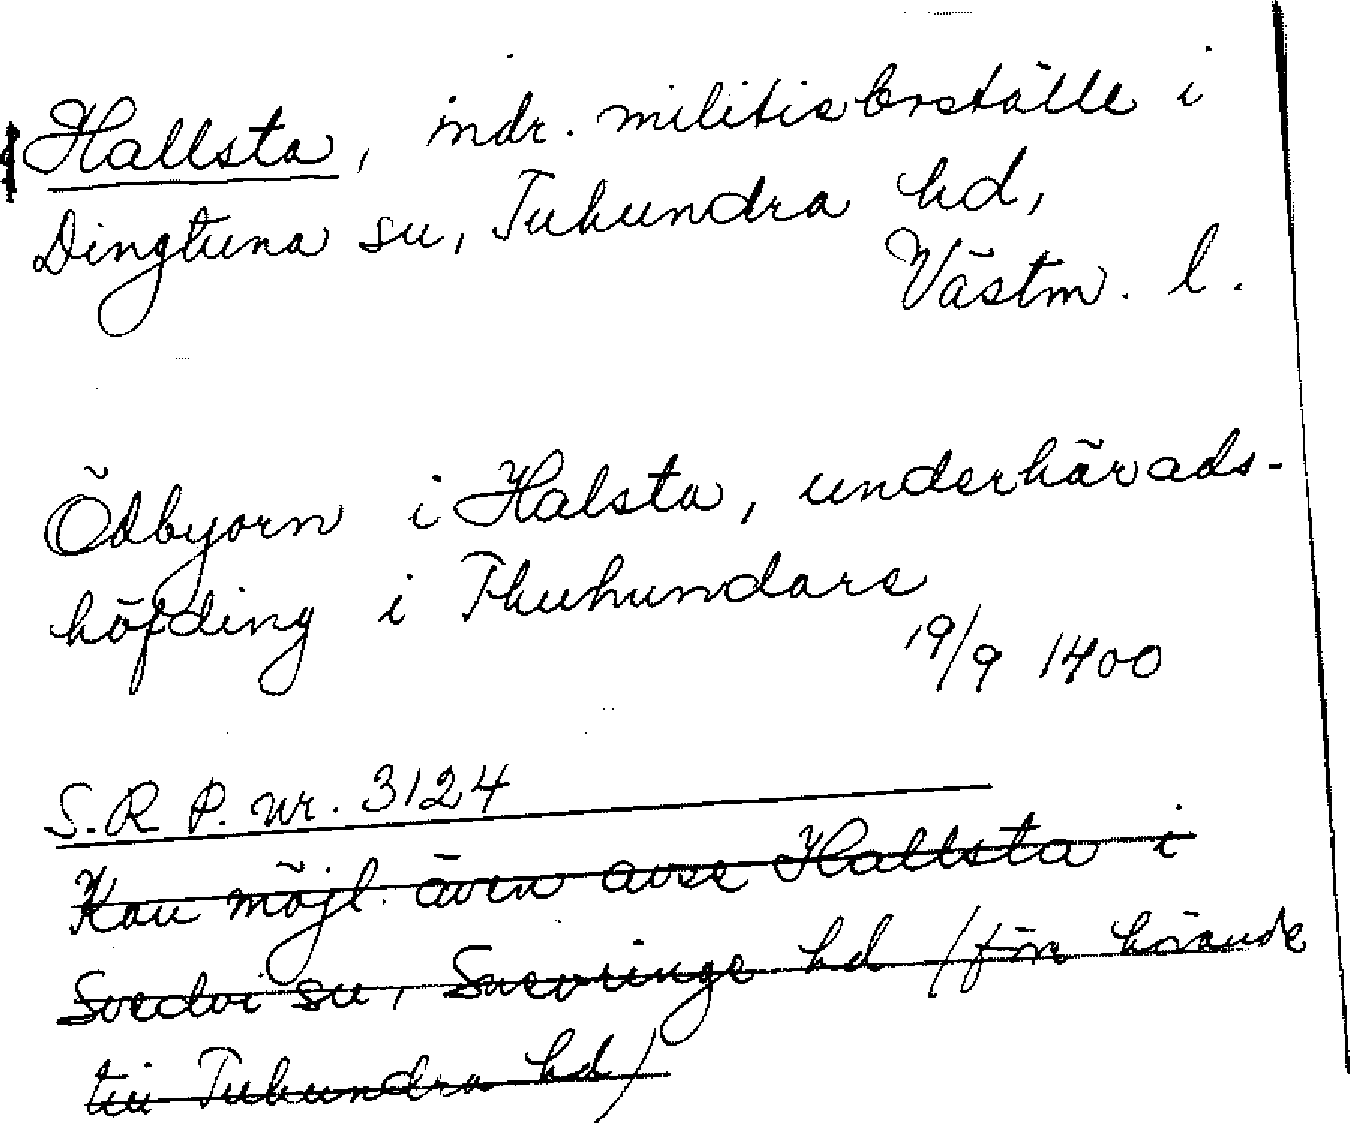 Hallsta, indr. militieboställe i
Dingtuna sn, Tuhundra hd,
Västm. l.
Ödbyorn i Halsta, underhärads-
höfding i Thuhundare
19/9 1400
S.R P. nr. 3124
Kan möjl. även avse Hallsta i
Svedvi sn, Snevringe hd (förr hörande
till Tuhundra hd)